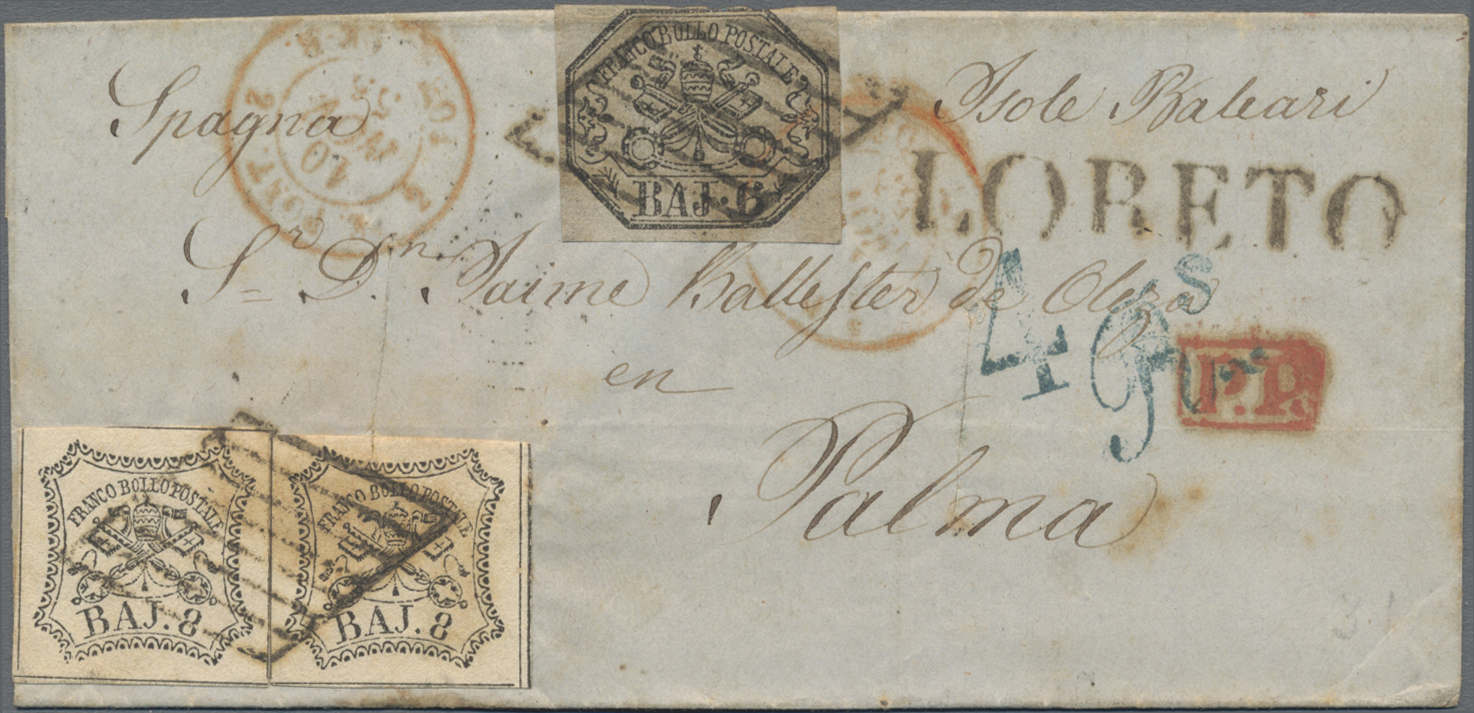 FRANCO BOLLO POSTALE
BAJ. 6
Spagna
Isole Baleari
LORETO
Sr Dn Jaime Ballester de Oleza
4 Rs
P.P.
en
Palma
FRANCO BOLLO POSTALE
BAJ. 8
FRANCO BOLLO POSTALE
BAJ. 8